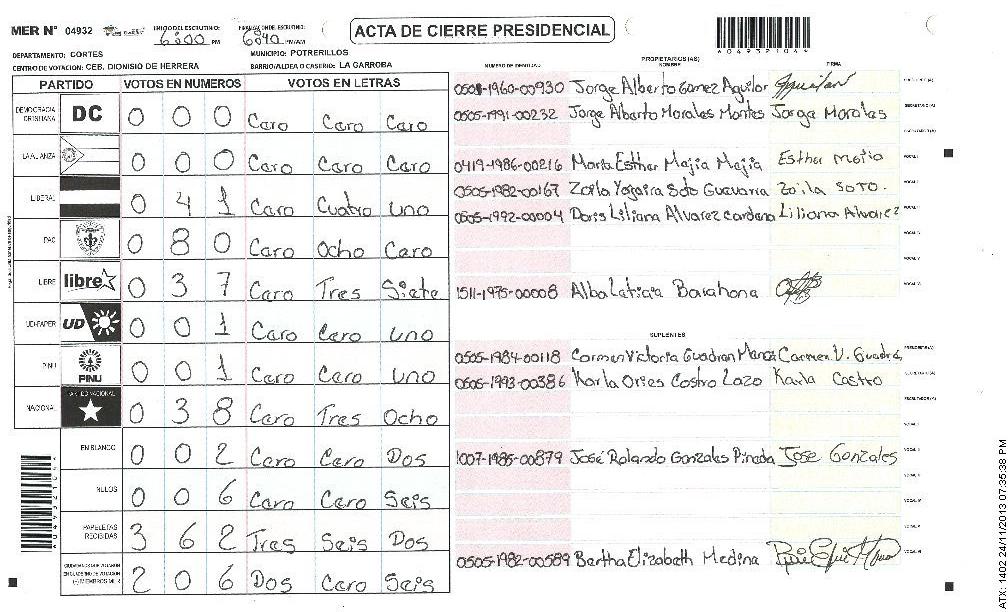 MER Nº 04932
INICIO DE ESCRUTINIO: 6:00 PM
6:40 PM/AM
ACTA DE CIERRE PRESIDENCIAL
DEPARTAMENTO: CORTES
MUNICIPIO: POTRERILLOS
CENTRO DE VOTACION: CEB. DIONISIO DE HERRERA
BARRIO/ALDEA O CASERIO: LA GARROBA
PARTIDO VOTOS EN NUMEROS VOTOS EN LETRAS
DEMOCRACIA CRISTIANA DC 0 0 0 Cero Cero Cero
LA ALIANZA 0 0 0 Cero Cero Cero
LIBERAL 0 4 1 Cero Cuatro Uno
PAC 0 8 0 Cero Ocho Cero
LIBRE libre 0 3 7 Cero Tres Siete
UD-FAPER UD 0 0 1 Cero Cero Uno
PINU PINU 0 0 1 Cero Cero Uno
NACIONAL PARTIDO NACIONAL 0 3 8 Cero Tres Ocho
EN BLANCO 0 0 2 Cero Cero Dos
NULOS 0 0 6 Cero Cero Seis
PAPELETAS RECIBIDAS 3 6 2 Tres Seis Dos
CIUDADANOS QUE VOTARON 2 0 6 Dos Cero Seis
NUMERO DE IDENTIDAD PROPIETARIOS (AS) NOMBRE FIRMA
0501-1960-00930 Jorge Alberto Gomez Aguilar
0505-1991-00232 Jorge Alberto Morales Montes Jorge Morales
0419-1986-00216 Maria Esther Mejia Mejia Esther Mejia
0505-1982-00167 Zoila Yogaira Soto Guevarra Zoila Soto.
0505-1992-00004 Doris Liliana Alvarez Cardona Liliana Alvarez
1511-1975-00008 Alba Leticia Barahona
SUPLENTES
0505-1984-00118 Carmen Victoria Guadron Carmen V. Guadr
0505-1993-00386 Karla Castro Lazo Karla Castro
1007-1985-00879 José Rolando Gonzales Pineda Jose Gonzales
0505-1982-00589 Bertha Elizabeth Medina
ATX: 1402 24/11/2013 07:35:38 PM